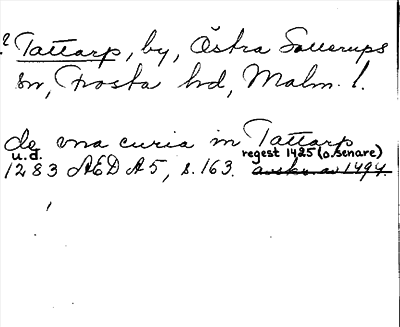 ? Tattarp, by, Östra Sallerups
sn, Frosta hd, Malm. l.
de vna curia in Tattarp
u.d. regest 1425 (o. senare)
1283 AEDA5, s. 163. avskr av 1494.